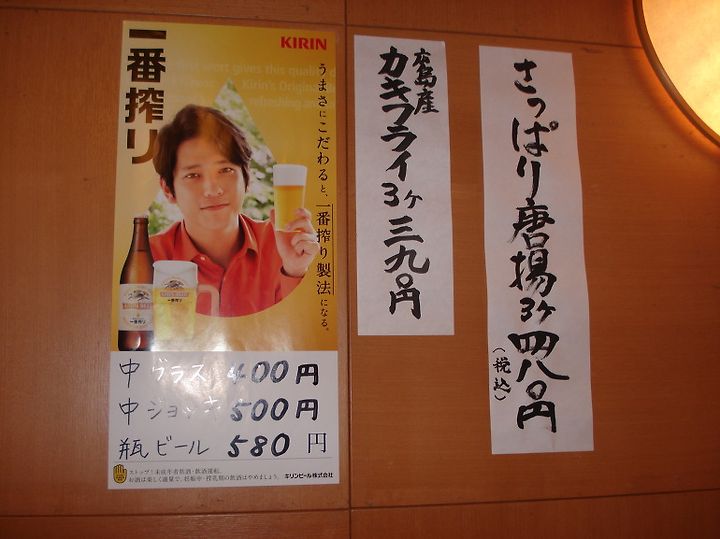 KIRIN
一番搾り
うまさにこだわると、一番搾り製法になる。
一番搾り
KIRIN
中グラス 400円
中ジョッキ 500円
瓶ビール 580円
ストップ!未成年者飲酒・飲酒運転。
お酒は楽しく適量で。妊娠中・授乳期の飲酒はやめましょう。
キリンビール株式会社
広島産
カキフライ3ケ 三九〇円
さっぱり唐揚3ケ 四八〇円
(税込)